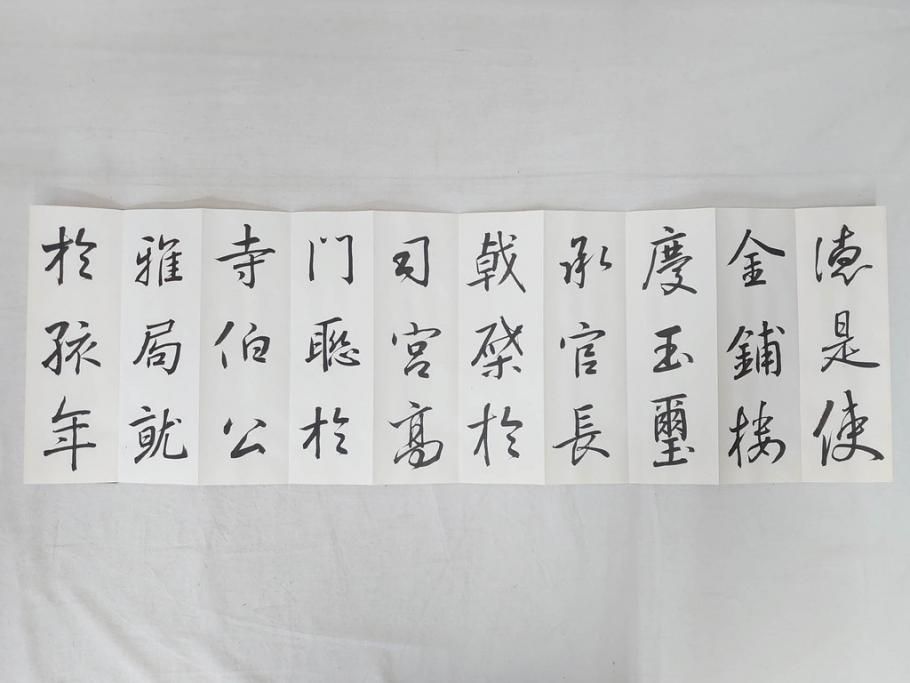 德是使
金鋪棲
慶玉璽
承官長
戟棨於
司宮高
門聯於
寺伯公
雅局就
於孩年